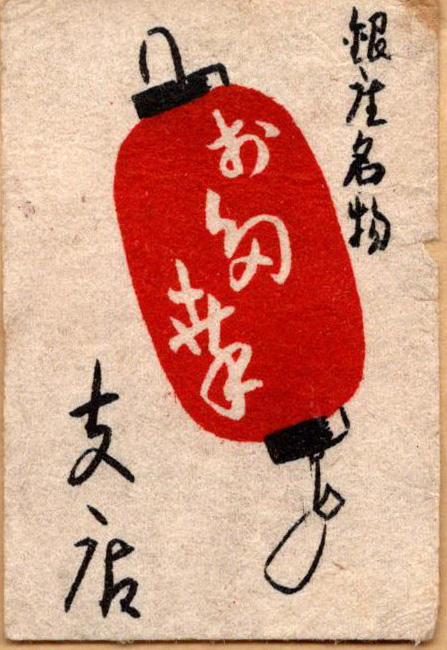 銀座名物
お多幸
支店